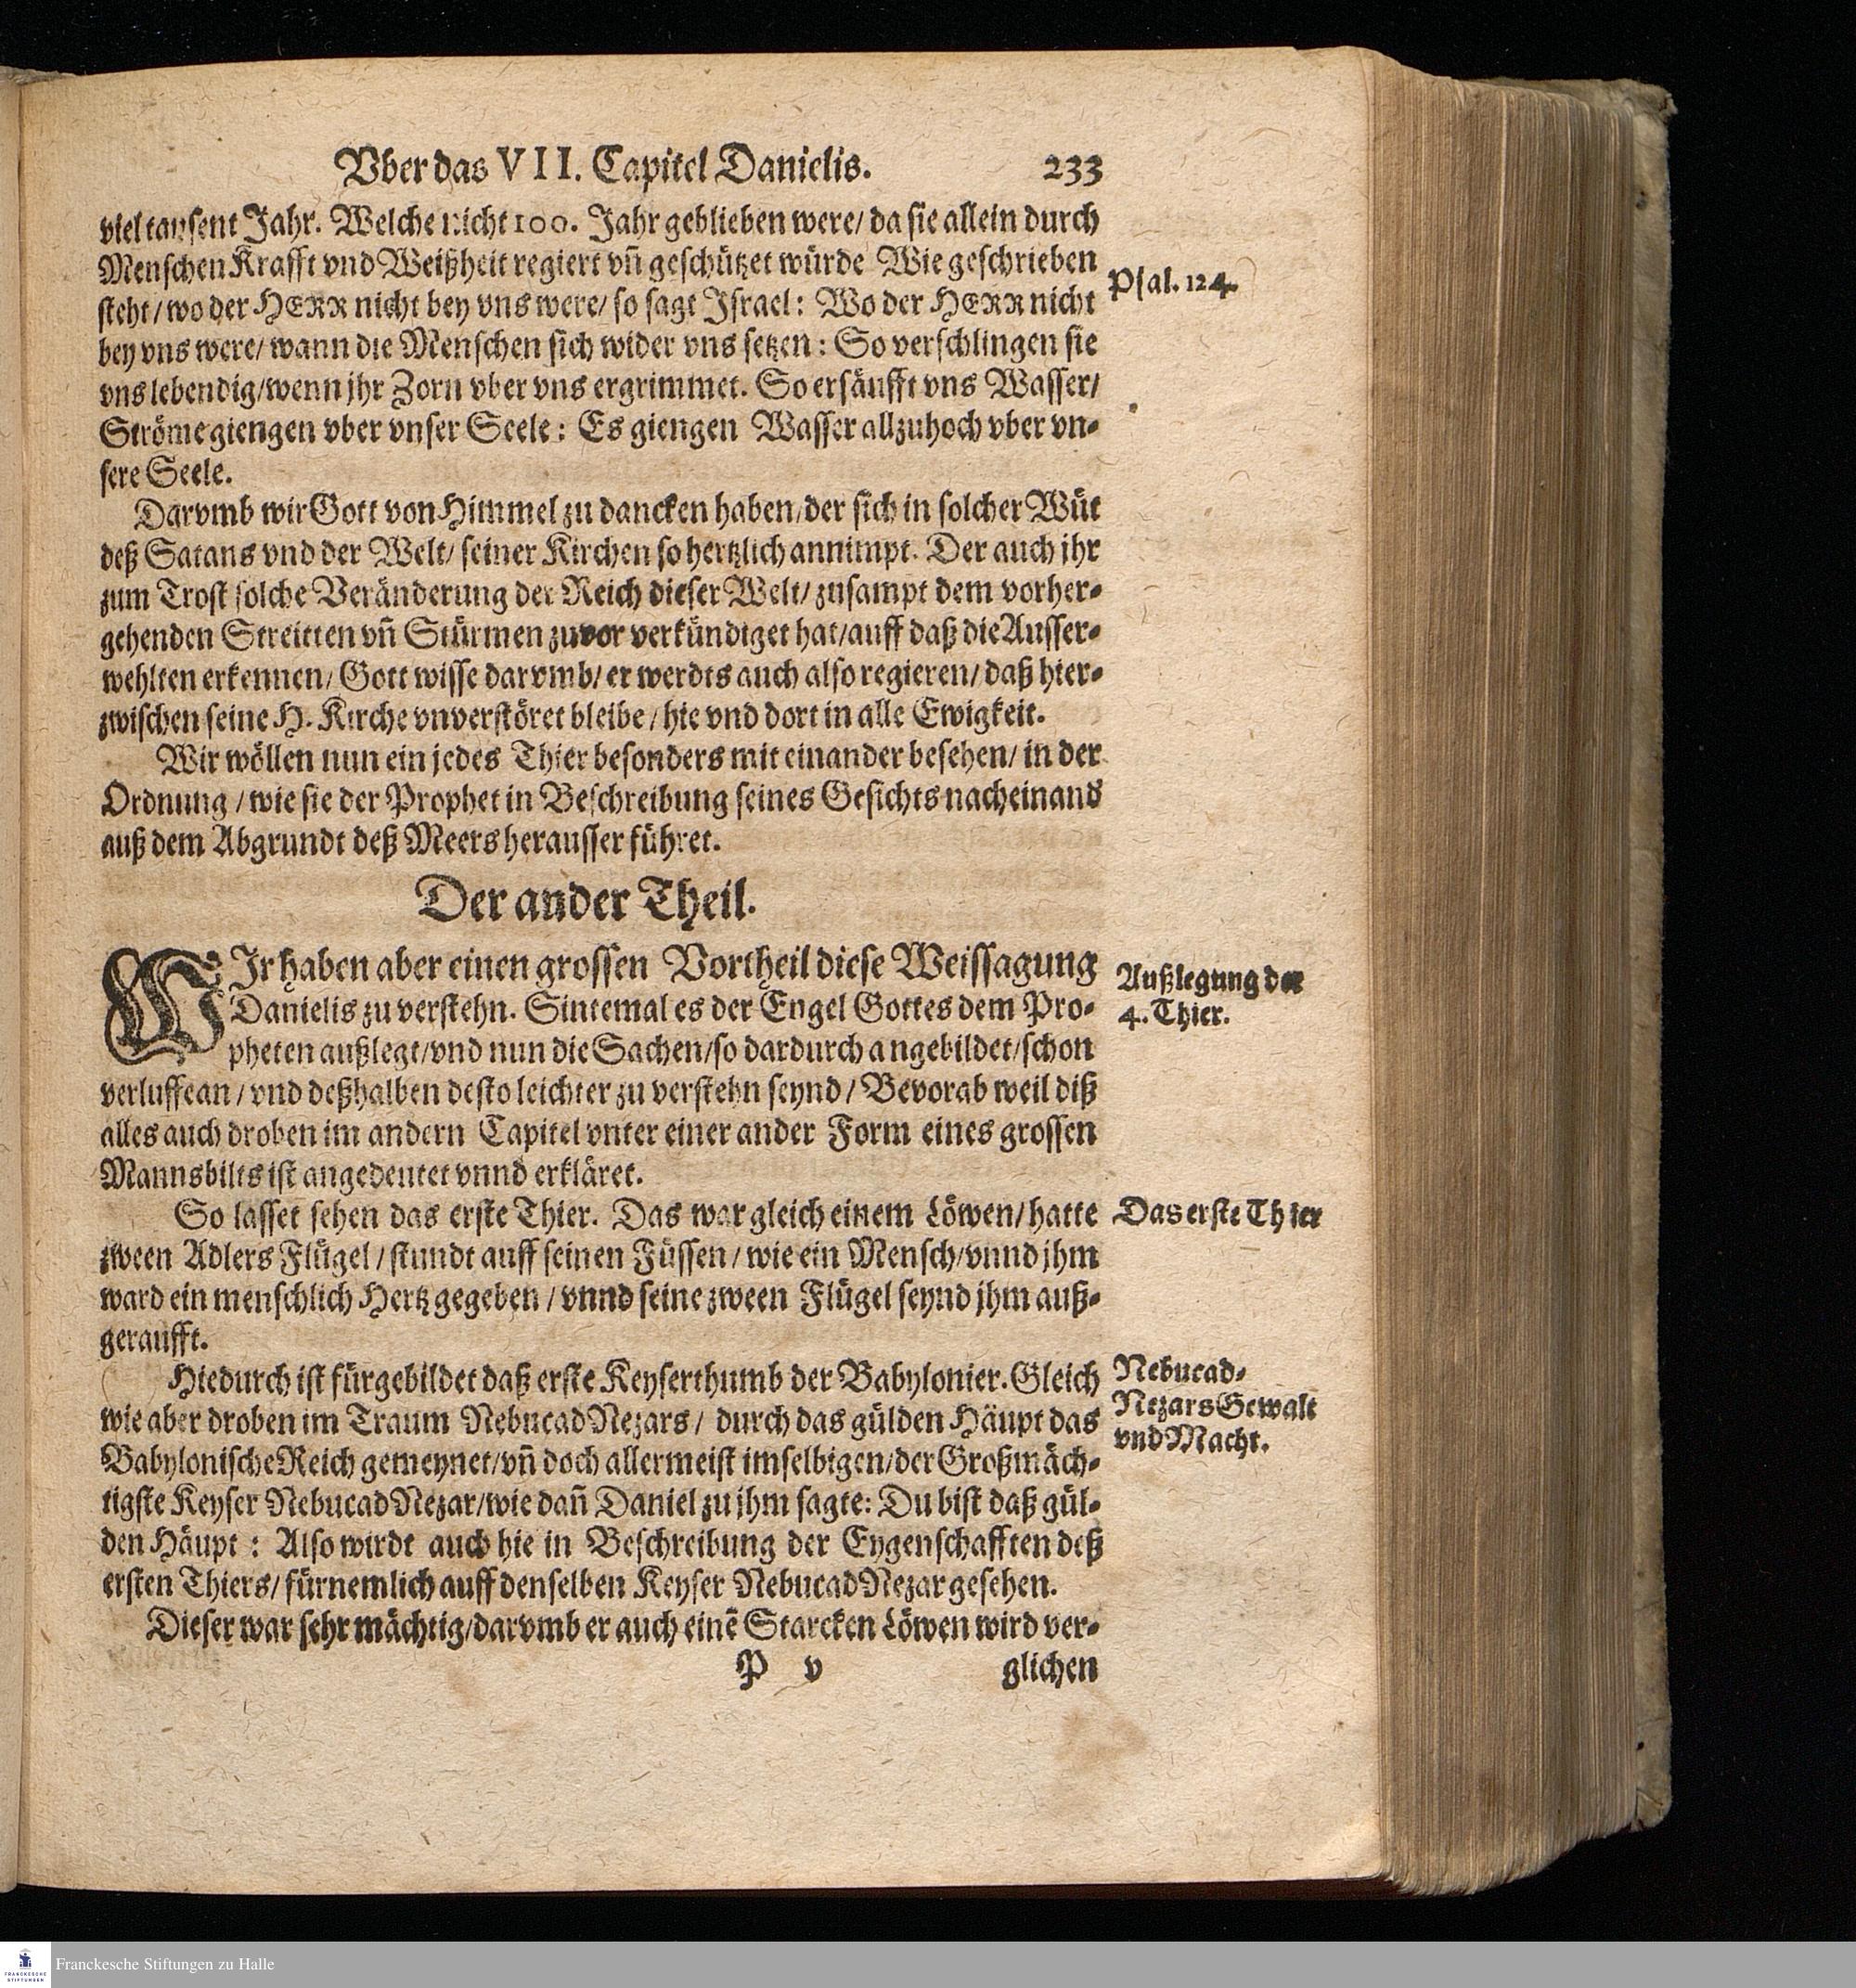 Vber das VII. Capitel Danielis. 233
viel tausent Jahr. Welche nicht 100. Jahr geblieben were/ da sie allein durch
Menschen Krafft vnd Weißheit regiert vñ geschützet würde Wie geschrieben
steht/ wo der HERR nicht bey vns were/ so sagt Israel: Wo der HERR nicht
Psal. 124.
bey vns were/ wann die Menschen sich wider vns setzen: So verschlingen sie
vns lebendig/wenn jhr Zorn vber vns ergrimmet. So ersäufft vns Wasser/
Ströme giengen vber vnser Seele: Es giengen Wasser allzuhoch vber vn-
sere Seele.
Darvmb wir Gott von Himmel zu dancken haben/der sich in solcher Wüt
deß Satans vnd der Welt/ seiner Kirchen so hertzlich annimpt. Der auch jhr
zum Trost solche Veränderung der Reich dieser Welt/ zusampt dem vorher-
gehenden Streitten vñ Stürmen zuvor verkündiget hat/auff daß die Ausser-
wehlten erkennen/ Gott wisse darvmb/ er werdts auch also regieren/ daß hier-
zwischen seine H. Kirche vnverstöret bleibe/ hie vnd dort in alle Ewigkeit.
Wir wöllen nun ein jedes Thier besonders mit einander besehen/ in der
Ordnung/ wie sie der Prophet in Beschreibung seines Gesichts nacheinand
auß dem Abgrundt deß Meers herausser führet.
Der ander Theil.
WIr haben aber einen grossen Vortheil diese Weissagung
Danielis zu verstehn. Sintemal es der Engel Gottes dem Pro-
pheten außlegt/vnd nun die Sachen/so dardurch angebildet/schon
Außlegung der
4. Thier.
verluffean/ vnd deßhalben desto leichter zu verstehn seynd/ Bevorab weil diß
alles auch droben im andern Capitel vnter einer ander Form eines grossen
Mannsbilts ist angedeutet vnnd erkläret.
So lasset sehen das erste Thier. Das war gleich einem Löwen/ hatte
Das erste Thier
zween Adlers Flügel/ stundt auff seinen Füssen/ wie ein Mensch/vnnd jhm
ward ein menschlich Hertz gegeben/ vnnd seine zween Flügel seynd jhm auß-
geraufft.
Hiedurch ist fürgebildet daß erste Keyserthumb der Babylonier. Gleich
wie aber droben im Traum NebucadNezars/ durch das gülden Häupt das
Babylonische Reich gemeynet/vñ doch allermeist im selbigen/der Großmäch-
Nebucad-
Nezars Gewalt
vnd Macht.
tigste Keyser NebucadNezar/wie dañ Daniel zu jhm sagte: Du bist daß gül-
den Häupt: Also wirdt auch hie in Beschreibung der Eygenschafften deß
ersten Thiers/ fürnemlich auff denselben Keyser NebucadNezar gesehen.
Dieser war sehr mächtig/darvmb er auch einē Starcken Löwen wird ver-
P v glichen
FRANCKESCHE STIFTUNGEN
Franckesche Stiftungen zu Halle